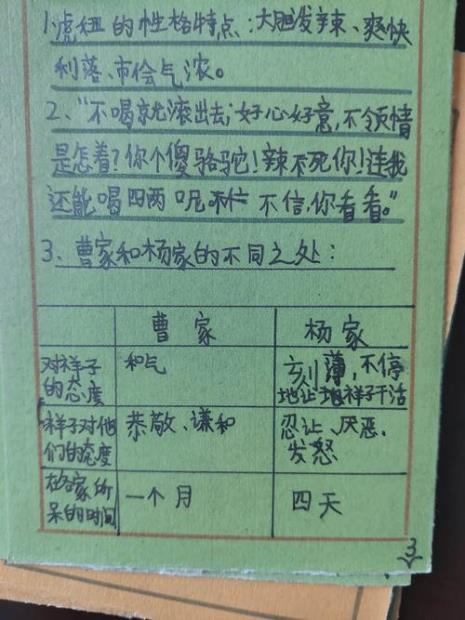 1、虎妞的性格特点：大胆泼辣、爽快
利落、市侩气浓。
2、“不喝就滚出去；好心好意，不领情
是怎着？你个傻骆驼！辣不死你！连我
还能喝四两呢 不信，你看看。”
3、曹家和杨家的不同之处：
曹家 杨家
对祥子的态度 和气 刻薄，不停地让祥子干活
祥子对他们的态度 恭敬、谦和 忍让、厌恶、发怒
在各家所呆的时间 一个月 四天
3